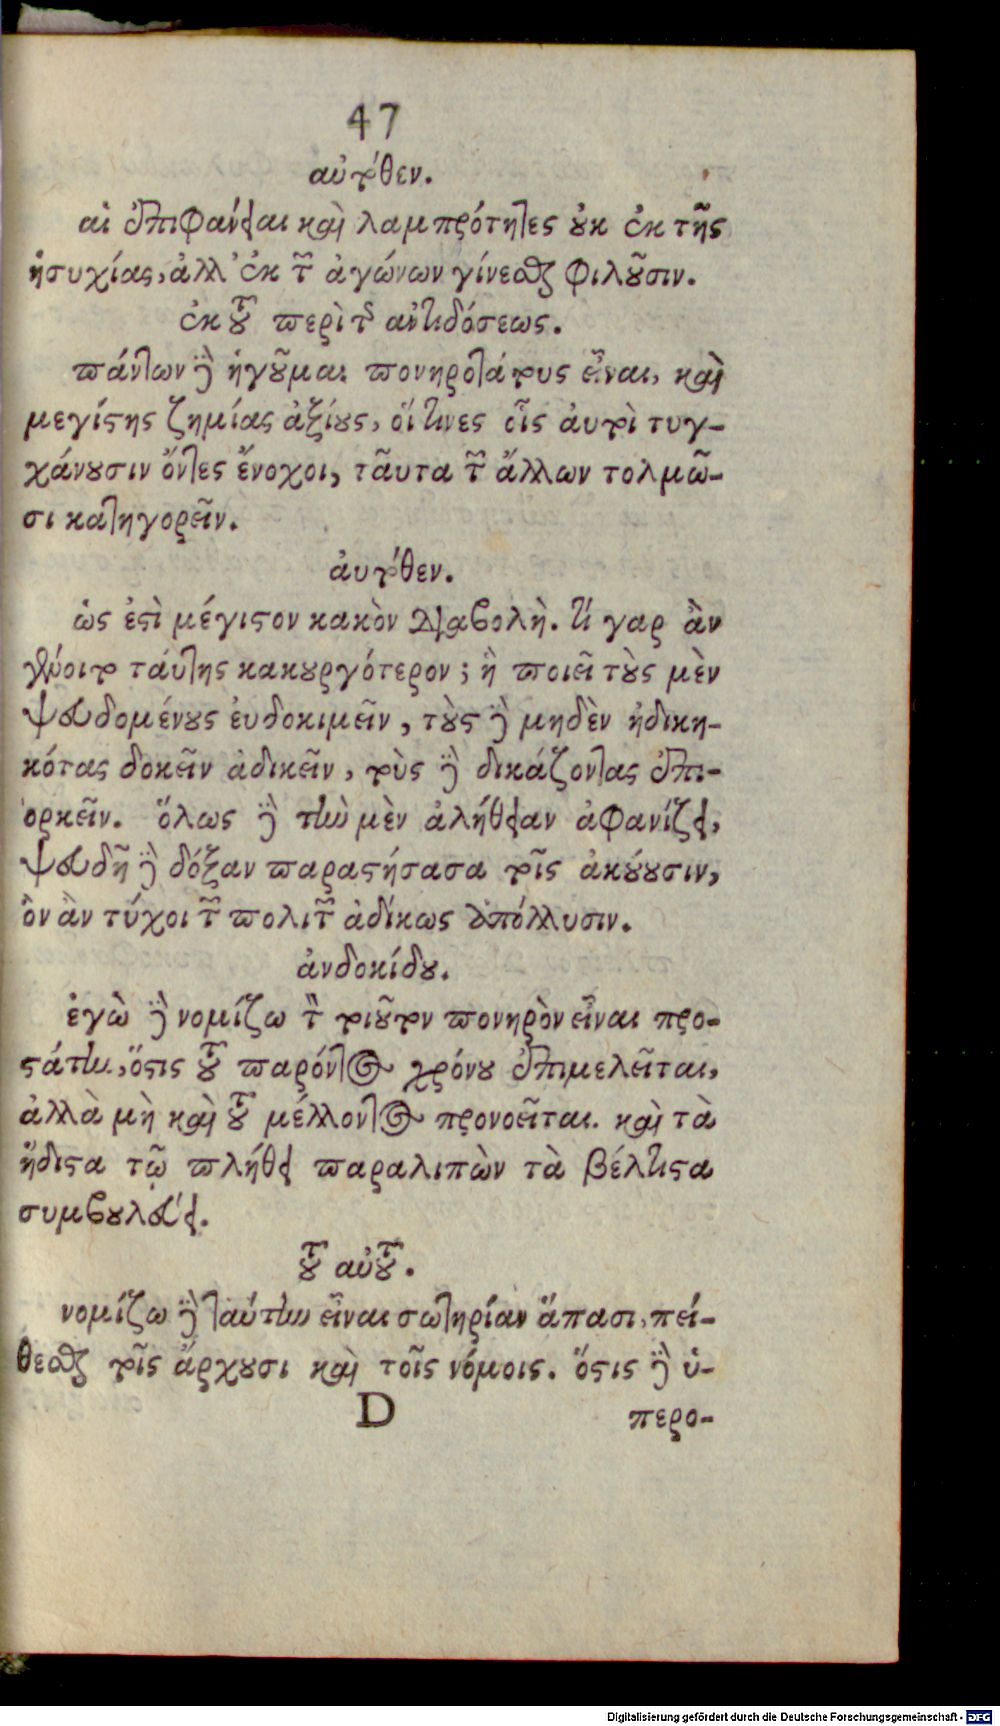 47
αὐτόθεν.
αἱ ἐπιφάνειαι καὶ λαμπρότητες οὐκ ἐκ τῆς
ἡσυχίας, ἀλλ' ἐκ τῶν ἀγώνων γίνεσθαι φιλοῦσιν.
ἐκ τοῦ περὶ τῆς ἀντιδόσεως.
πάντων δὲ ἡγοῦμαι πονηροτάτους εἶναι, καὶ
μεγίστης ζημίας ἀξίους, οἵτινες οἷς ἀυτοὶ τυγ-
χάνουσιν ὄντες ἔνοχοι, ταῦτα τῶν ἄλλων τολμῶ-
σι κατηγορεῖν.
ἀυτόθεν.
ὡς ἐστὶ μέγιστον κακὸν διαβολὴ. τί γαρ ἂν
γένοιτο ταύτης κακουργότερον; ἣ ποιεῖ τοὺς μὲν
ψευδομένους ἐυδοκιμεῖν, τοὺς δὲ μηδὲν ἠδικη-
κότας δοκεῖν ἀδικεῖν, τοὺς δὲ δικάζοντας ἐπι-
ορκεῖν. ὅλως δὲ τὴν μὲν ἀλήθειαν ἀφανίζει,
ψευδῆ δὲ δόξαν παραστήσασα τοῖς ἀκούουσιν,
ὃν ἂν τύχοι τῶν πολιτῶν ἀδίκως ἀπόλλυσιν.
ἀνδοκίδου.
ἐγὼ δὲ νομίζω τὸν τοιοῦτον πονηρὸν εἶναι προ-
στάτην, ὅστις τοῦ παρόντος χρόνου ἐπιμελεῖται,
ἀλλὰ μὴ καὶ τοῦ μέλλοντος προνοεῖται. καὶ τὰ
ἥδιστα τῷ πλήθει παραλιπὼν τὰ βέλτιστα
συμβουλεύει.
τοῦ αὐτοῦ.
νομίζω δὲ ταύτην εἶναι σωτηρίαν ἅπασι, πεί-
θεσθαι τοῖς ἄρχουσι καὶ τοῖς νόμοις. ὅστις δὲ ὑ-
D περο-
Digitalisierung gefördert durch die Deutsche Forschungsgemeinschaft - DFG